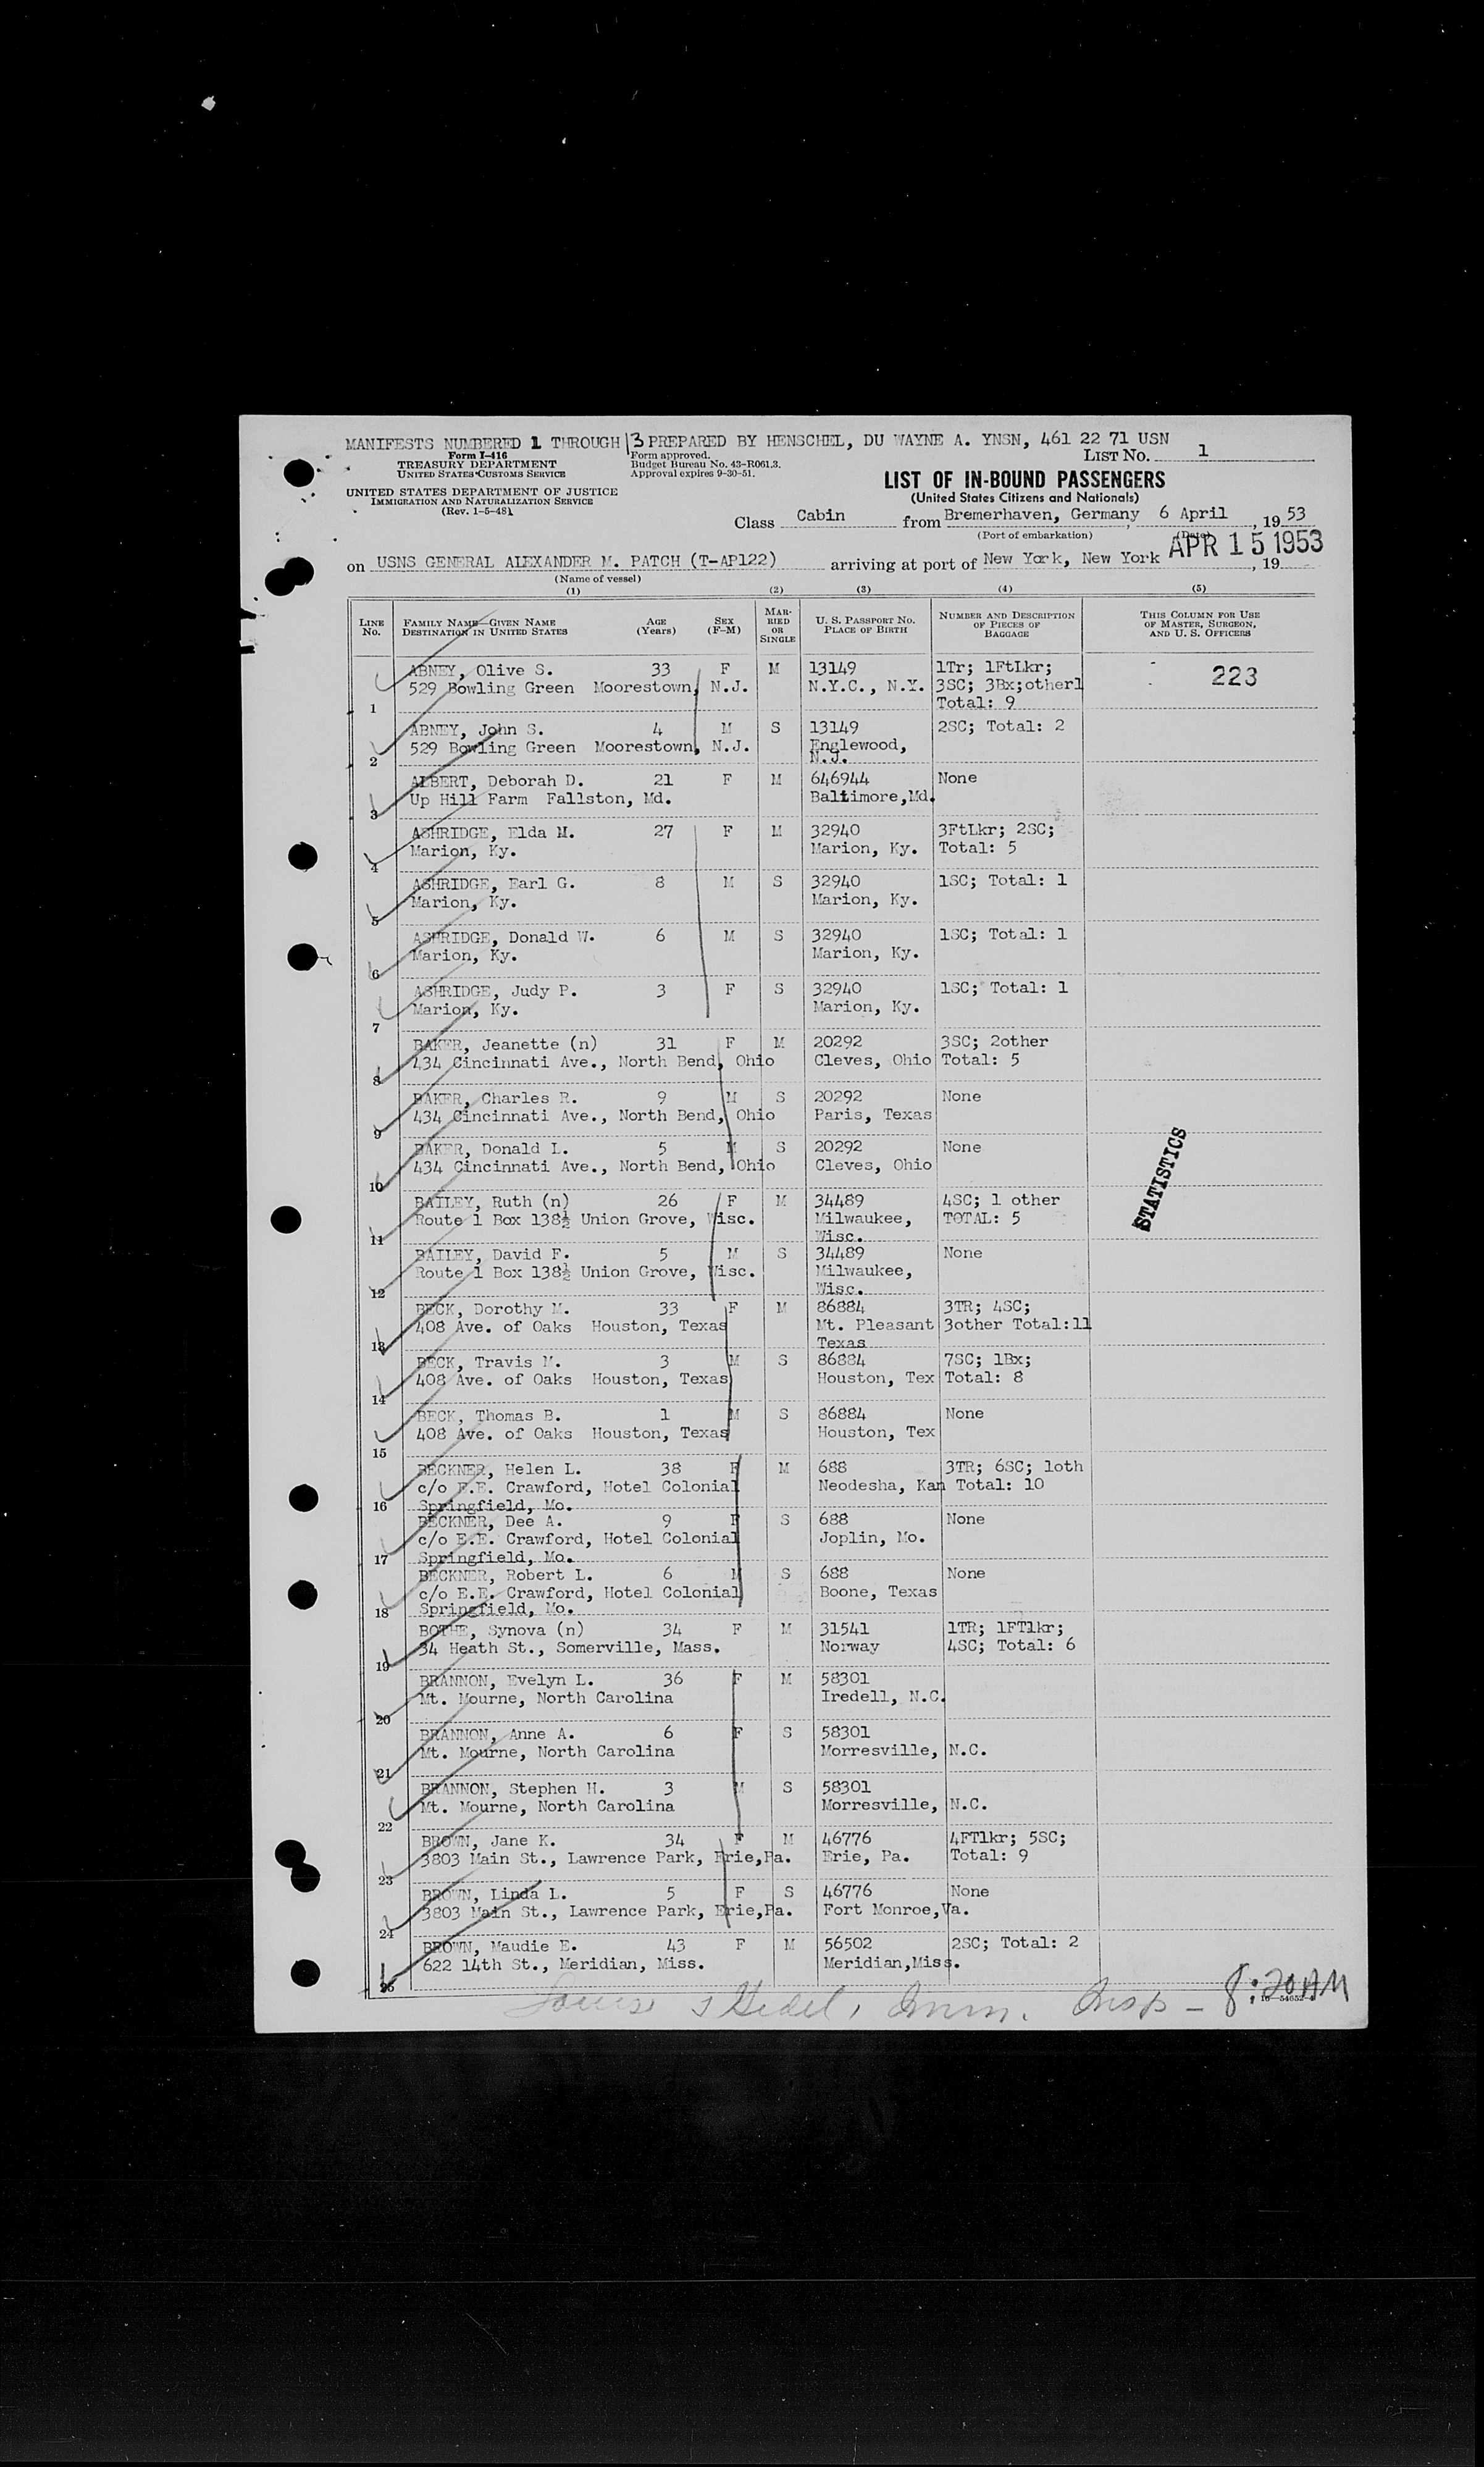 MANIFESTS NUMBERED 1 THROUGH 13 PREPARED BY HENSCHEL, DU WAYNE A. YNSN, 461 22 71 USN
Form I-416
TREASURY DEPARTMENT
UNITED STATES CUSTOMS SERVICE
Form approved.
Budget Bureau No. 43-R061.3.
Approval expires 9-30-51.
LIST NO. 1
UNITED STATES DEPARTMENT OF JUSTICE
IMMIGRATION AND NATURALIZATION SERVICE
(Rev. 1-5-48)
LIST OF IN-BOUND PASSENGERS
(United States Citizens and Nationals)
Class Cabin from Bremerhaven, Germany, 6 April, 1953
(Port of embarkation) (Date)
on USNS GENERAL ALEXANDER M. PATCH (T-AP122) arriving at port of New York, New York APR 15 1953, 19
(Name of vessel)
(1) (2) (3) (4) (5)
LINE NO. FAMILY NAME—GIVEN NAME DESTINATION IN UNITED STATES AGE (Years) SEX (F-M) MARRIED OR SINGLE U. S. PASSPORT NO. PLACE OF BIRTH NUMBER AND DESCRIPTION OF PIECES OF BAGGAGE THIS COLUMN FOR USE OF MASTER, SURGEON, AND U. S. OFFICERS
ABNEY, Olive S. 33 F M 13149 1Tr; 1FtLkr; 223
529 Bowling Green Moorestown, N.J. N.Y.C., N.Y. 3SC; 3Bx;other1
1 Total: 9
ABNEY, John S. 4 M S 13149 2SC; Total: 2
529 Bowling Green Moorestown, N.J. Englewood,
2 N.J.
ALBERT, Deborah D. 21 F M 646944 None
Up Hill Farm Fallston, Md. Baltimore,Md.
3
ASHRIDGE, Elda M. 27 F M 32940 3FtLkr; 2SC;
Marion, Ky. Marion, Ky. Total: 5
4
ASHRIDGE, Earl G. 8 M S 32940 1SC; Total: 1
Marion, Ky. Marion, Ky.
5
ASHRIDGE, Donald W. 6 M S 32940 1SC; Total: 1
Marion, Ky. Marion, Ky.
6
ASHRIDGE, Judy P. 3 F S 32940 1SC; Total: 1
Marion, Ky. Marion, Ky.
7
BAKER, Jeanette (n) 31 F M 20292 3SC; 2other
434 Cincinnati Ave., North Bend, Ohio Cleves, Ohio Total: 5
8
BAKER, Charles R. 9 M S 20292 None
434 Cincinnati Ave., North Bend, Ohio Paris, Texas
9
BAKER, Donald L. 5 M S 20292 None
434 Cincinnati Ave., North Bend, Ohio Cleves, Ohio
10
STATISTICS
BAILEY, Ruth (n) 26 F M 34489 4SC; 1 other
Route 1 Box 138½ Union Grove, Wisc. Milwaukee, TOTAL: 5
11 Wisc.
BAILEY, David F. 5 M S 34489 None
Route 1 Box 138½ Union Grove, Wisc. Milwaukee,
12 Wisc.
BECK, Dorothy M. 33 F M 86884 3TR; 4SC;
408 Ave. of Oaks Houston, Texas Mt. Pleasant 3other Total:11
13 Texas
BECK, Travis M. 3 M S 86884 7SC; 1Bx;
408 Ave. of Oaks Houston, Texas Houston, Tex Total: 8
14
BECK, Thomas B. 1 M S 86884 None
408 Ave. of Oaks Houston, Texas Houston, Tex
15
BECKNER, Helen L. 38 F M 688 3TR; 6SC; 1oth
c/o E.E. Crawford, Hotel Colonial Neodesha, Kan Total: 10
16 Springfield, Mo.
BECKNER, Dee A. 9 F S 688 None
c/o E.E. Crawford, Hotel Colonial Joplin, Mo.
17 Springfield, Mo.
BECKNER, Robert L. 6 M S 688 None
c/o E.E. Crawford, Hotel Colonial Boone, Texas
18 Springfield, Mo.
BOTHE, Synova (n) 34 F M 31541 1TR; 1FTlkr;
34 Heath St., Somerville, Mass. Norway 4SC; Total: 6
19
BRANNON, Evelyn L. 36 F M 58301
Mt. Mourne, North Carolina Iredell, N.C.
20
BRANNON, Anne A. 6 F S 58301
Mt. Mourne, North Carolina Morresville, N.C.
21
BRANNON, Stephen H. 3 M S 58301
Mt. Mourne, North Carolina Morresville, N.C.
22
BROWN, Jane K. 34 F M 46776 4FTlkr; 5SC;
3803 Main St., Lawrence Park, Erie,Pa. Erie, Pa. Total: 9
23
BROWN, Linda L. 5 F S 46776 None
3803 Main St., Lawrence Park, Erie,Pa. Fort Monroe,Va.
24
BROWN, Maudie E. 43 F M 56502 2SC; Total: 2
622 14th St., Meridian, Miss. Meridian,Miss.
25
Imm. Insp - 8:20 AM